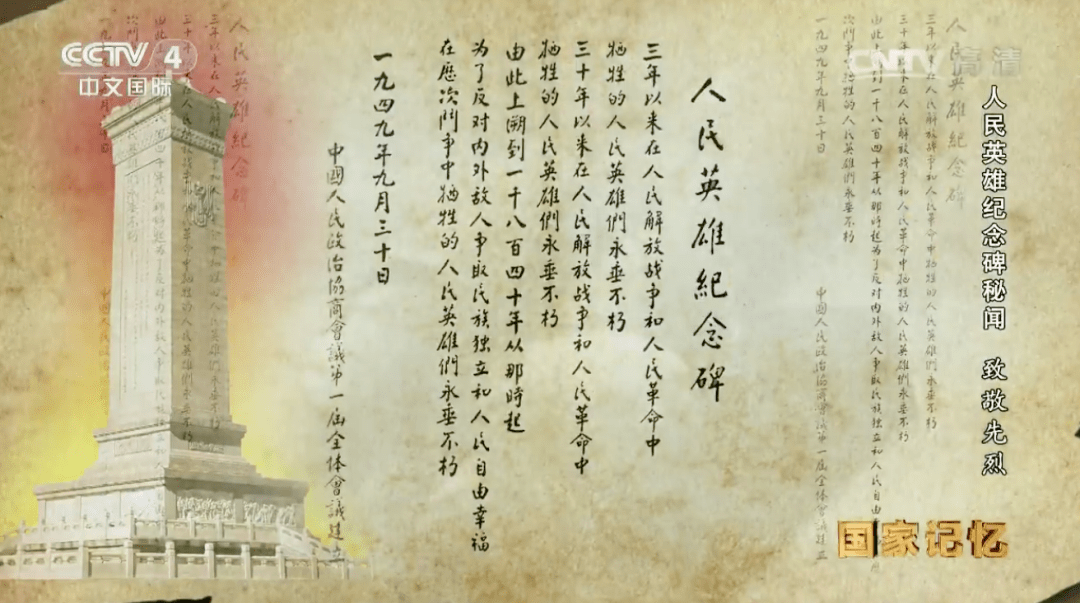 CCTV 4
中文国际
CNTV 高清
人民英雄纪念碑秘闻 致敬先烈
人民英雄紀念碑
三年以来在人民解放战争和人民革命中
牺牲的人民英雄們永垂不朽
三十年以来在人民解放战争和人民革命中
牺牲的人民英雄們永垂不朽
由此上溯到一千八百四十年从那時起
为了反对内外敌人争取民族独立和人民自由幸福
在歷次鬥争中牺牲的人民英雄們永垂不朽
一九四九年九月三十日
中國人民政治協商會議第一届全体會議建立
国家记忆